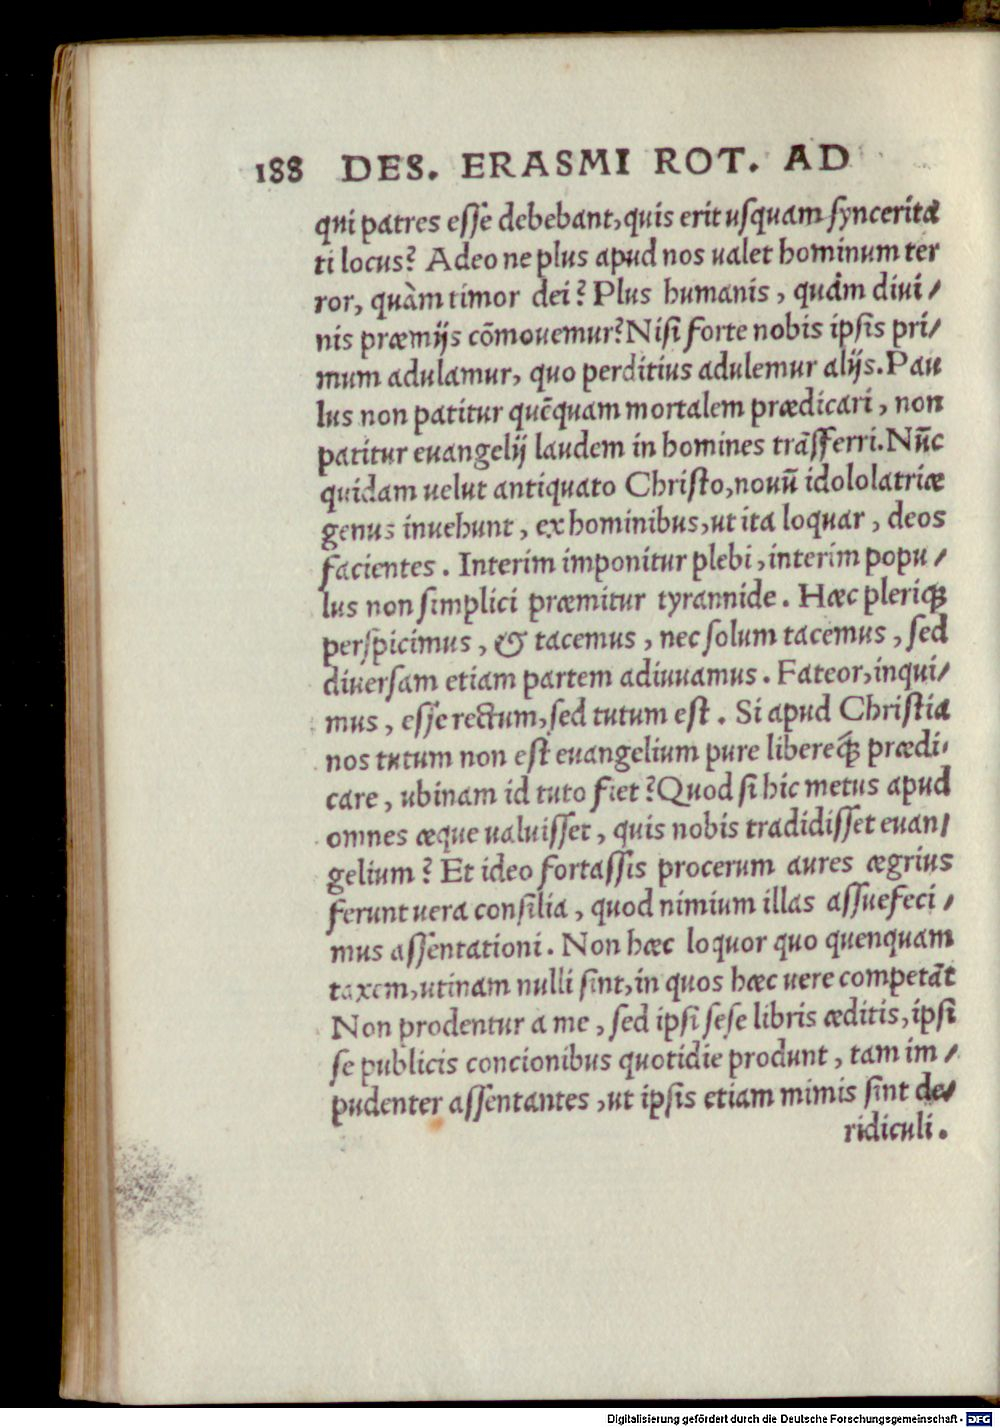 188 DES. ERASMI ROT. AD
qui patres eſſe debebant, quis erit uſquam ſyncerita
ti locus? Adeo ne plus apud nos ualet hominum ter
ror, quàm timor dei? Plus humanis, quàm diui/
nis præmijs cõmouemur? Niſi forte nobis ipſis pri/
mum adulamur, quo perditius adulemur alijs. Pau
lus non patitur quẽquam mortalem prædicari, non
patitur euangelij laudem in homines trãſferri. Nũc
quidam uelut antiquato Chriſto, nouũ idololatriæ
genus inuehunt, ex hominibus, ut ita loquar, deos
facientes. Interim imponitur plebi, interim popu/
lus non ſimplici præmitur tyrannide. Hæc pleriq́;
perſpicimus, & tacemus, nec ſolum tacemus, ſed
diuerſam etiam partem adiuuamus. Fateor, inqui/
mus, eſſe rectum, ſed tutum eſt. Si apud Chriſtia
nos tutum non eſt euangelium pure libereq́; prædi/
care, ubinam id tuto fiet? Quod ſi hic metus apud
omnes æque ualuiſſet, quis nobis tradidiſſet euan/
gelium? Et ideo fortaſſis procerum aures ægrius
ferunt uera conſilia, quod nimium illas aſſuefeci/
mus aſſentationi. Non hæc loquor quo quenquam
taxem, utinam nulli ſint, in quos hæc uere competãt
Non prodentur a me, ſed ipſi ſeſe libris æditis, ipſi
ſe publicis concionibus quotidie produnt, tam im/
pudenter aſſentantes, ut ipſis etiam mimis ſint de/
ridiculi.
Digitalisierung gefördert durch die Deutsche Forschungsgemeinschaft - DFG